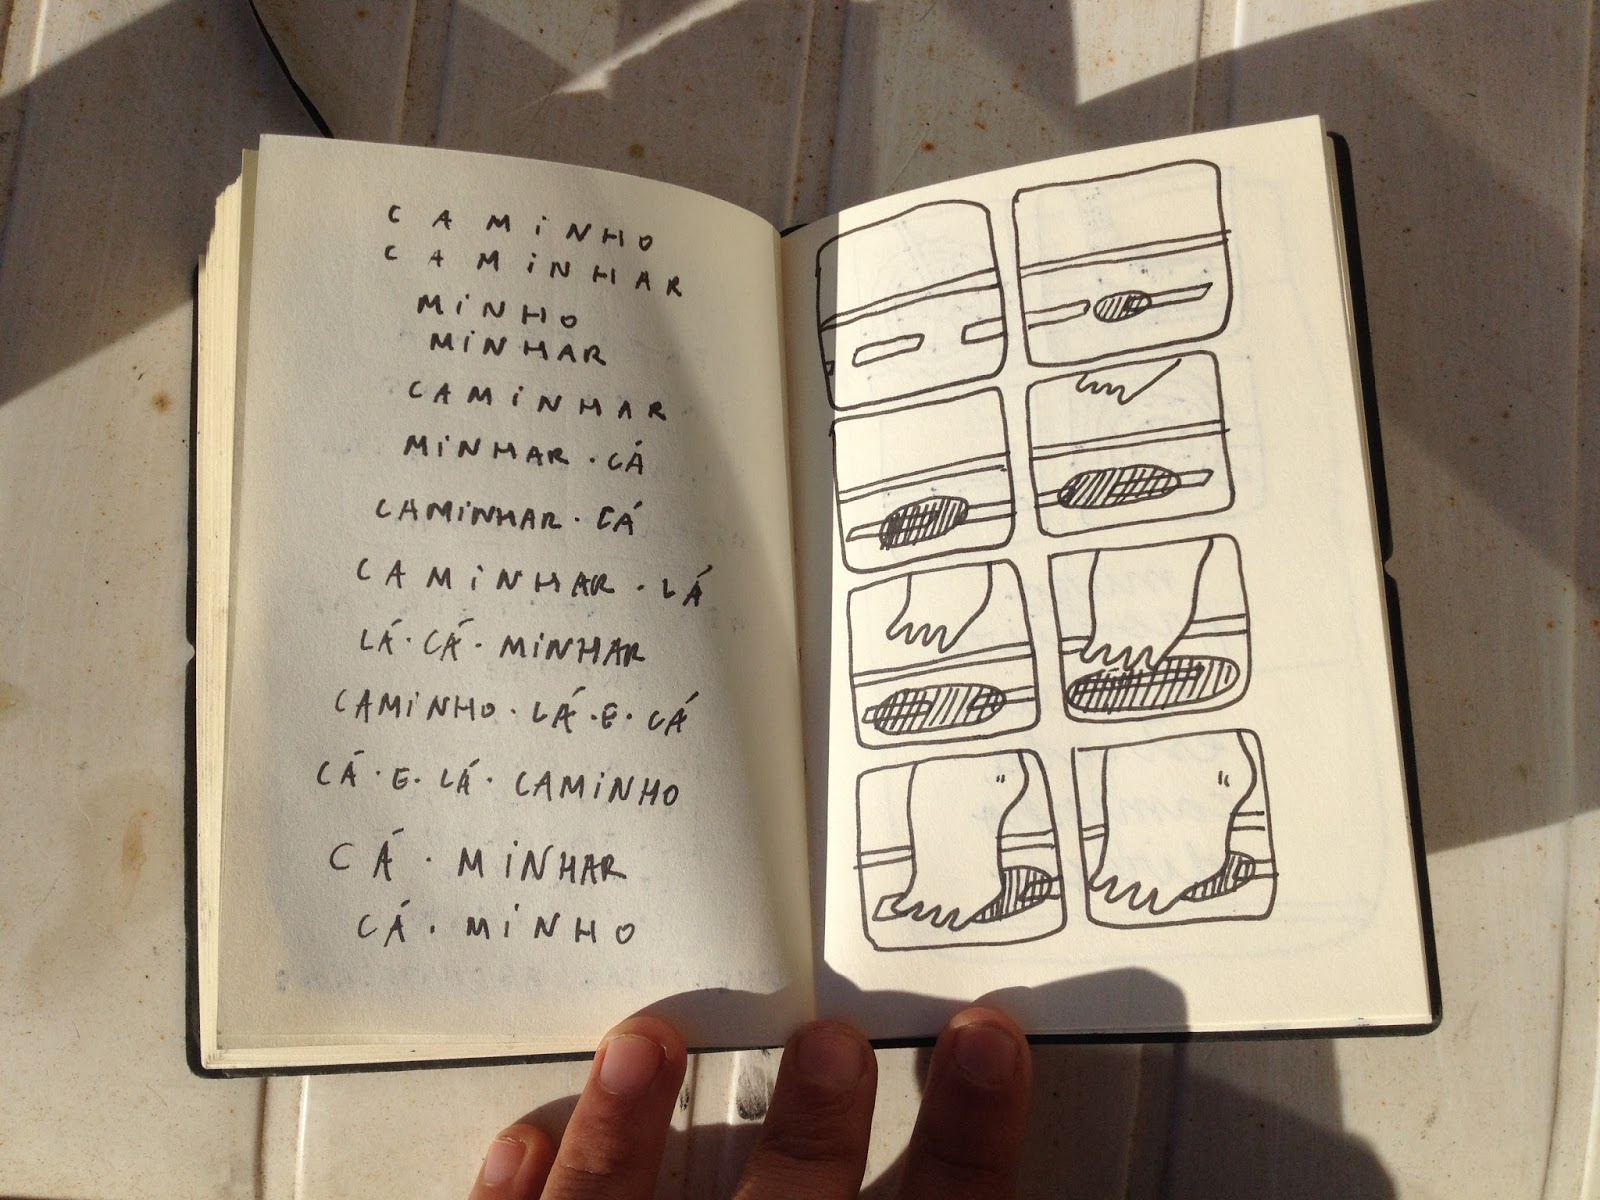 CAMINHO
CAMINHAR
MINHO
MINHAR
CAMINHAR
MINHAR · CÁ
CAMINHAR · CÁ
CAMINHAR · LÁ
LÁ · CÁ · MINHAR
CAMINHO · LÁ · E · CÁ
CÁ · E · LÁ · CAMINHO
CÁ · MINHAR
CÁ · MINHO